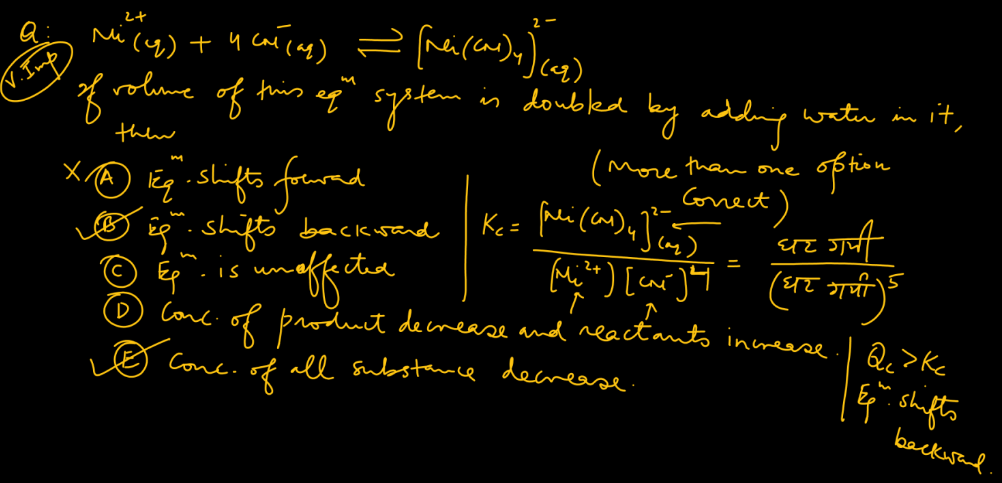 Q: Ni²⁺(aq) + 4 CN⁻(aq) ⇌ [Ni(CN)₄]²⁻(aq)
V. Imp
If volume of this eqᵐ system is doubled by adding water in it,
then
(More than one option
Correct)
X (A) Eqᵐ. shifts forward
✓ (B) Eqᵐ. shifts backward
(C) Eqᵐ. is unaffected
(D) Conc. of product decrease and reactants increase.
✓ (E) Conc. of all substance decrease.
Kc = [Ni(CN)₄]²⁻(aq) / [Ni²⁺] [CN⁻]⁴ = घट गयी / (घट गयी)⁵
Qc > Kc
Eqᵐ. shifts
backward.